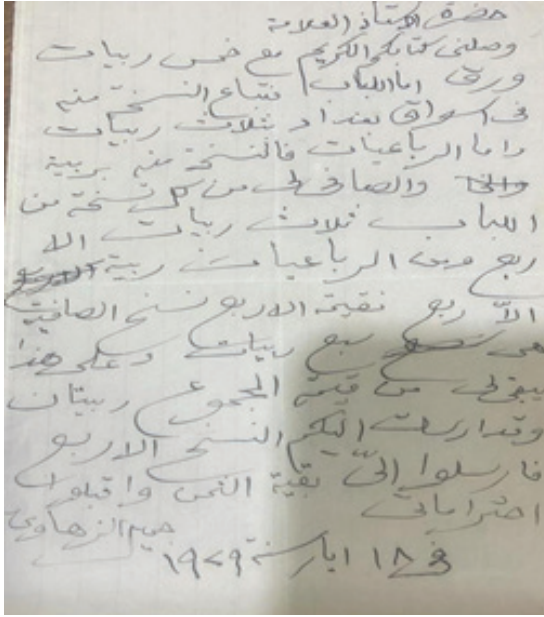 حضرة الاستاذ العلامة
وصلني كتابكم الكريم مع خمس ربيات
ورق اما اللباب فتباع النسخة منه
في اسواق بغداد بثلاث ربيات
واما الرباعيات فالنسخة منه بربية
والصافي لي من كل نسخة من
اللباب ثلاث ربيات الا
ربع ومن الرباعيات ربية
الاّ ربع فقيمة الاربع نسخ الصافية
هي سبع ربيات وعلى هذا
يبقى لي من قيمة المجموع ربيتان
وقد ارسلت اليكم النسخ الاربع
فارسلوا اليّ بقية الثمن واقبلوا
احتراماتي
جميل الزهاوي
في ١٨ ايار سنة ١٩٢٩